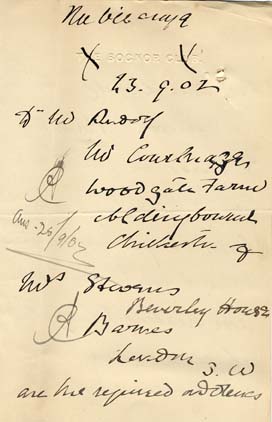 THE BOGNOR CLUB
23. 9. 02
Dr Mr
Mr
Woodgate Farm
Aldingbourne
Ans. 26/9/02
Chichester &
Mrs Stevens
Beverley House
Barnes
London S. W
are the required addresses